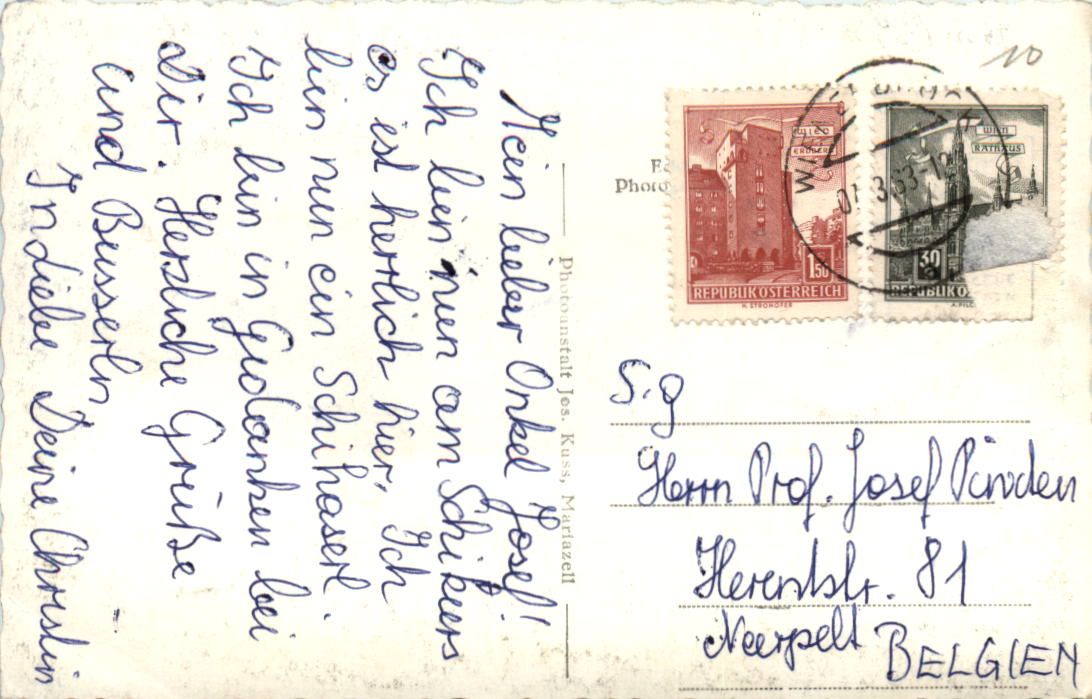 Mein lieber Onkel Josef!
Ich bin nun am Schikurs
es ist herrlich hier. Ich
bin nun ein Schihaserl.
Ich bin in Gedanken bei
Dir. Herzliche Grüße
und Busserln
In Liebe Deine Christin
Photoanstalt Jos. Kuss, Mariazell
Photo
10
WIEN
ERDBERG
1.50
REPUBLIK ÖSTERREICH
WIEN
RATHAUS
30
REPUBLIK Ö
S.g
Herrn Prof. Josef
Herentstr. 81
Neerpelt BELGIEN